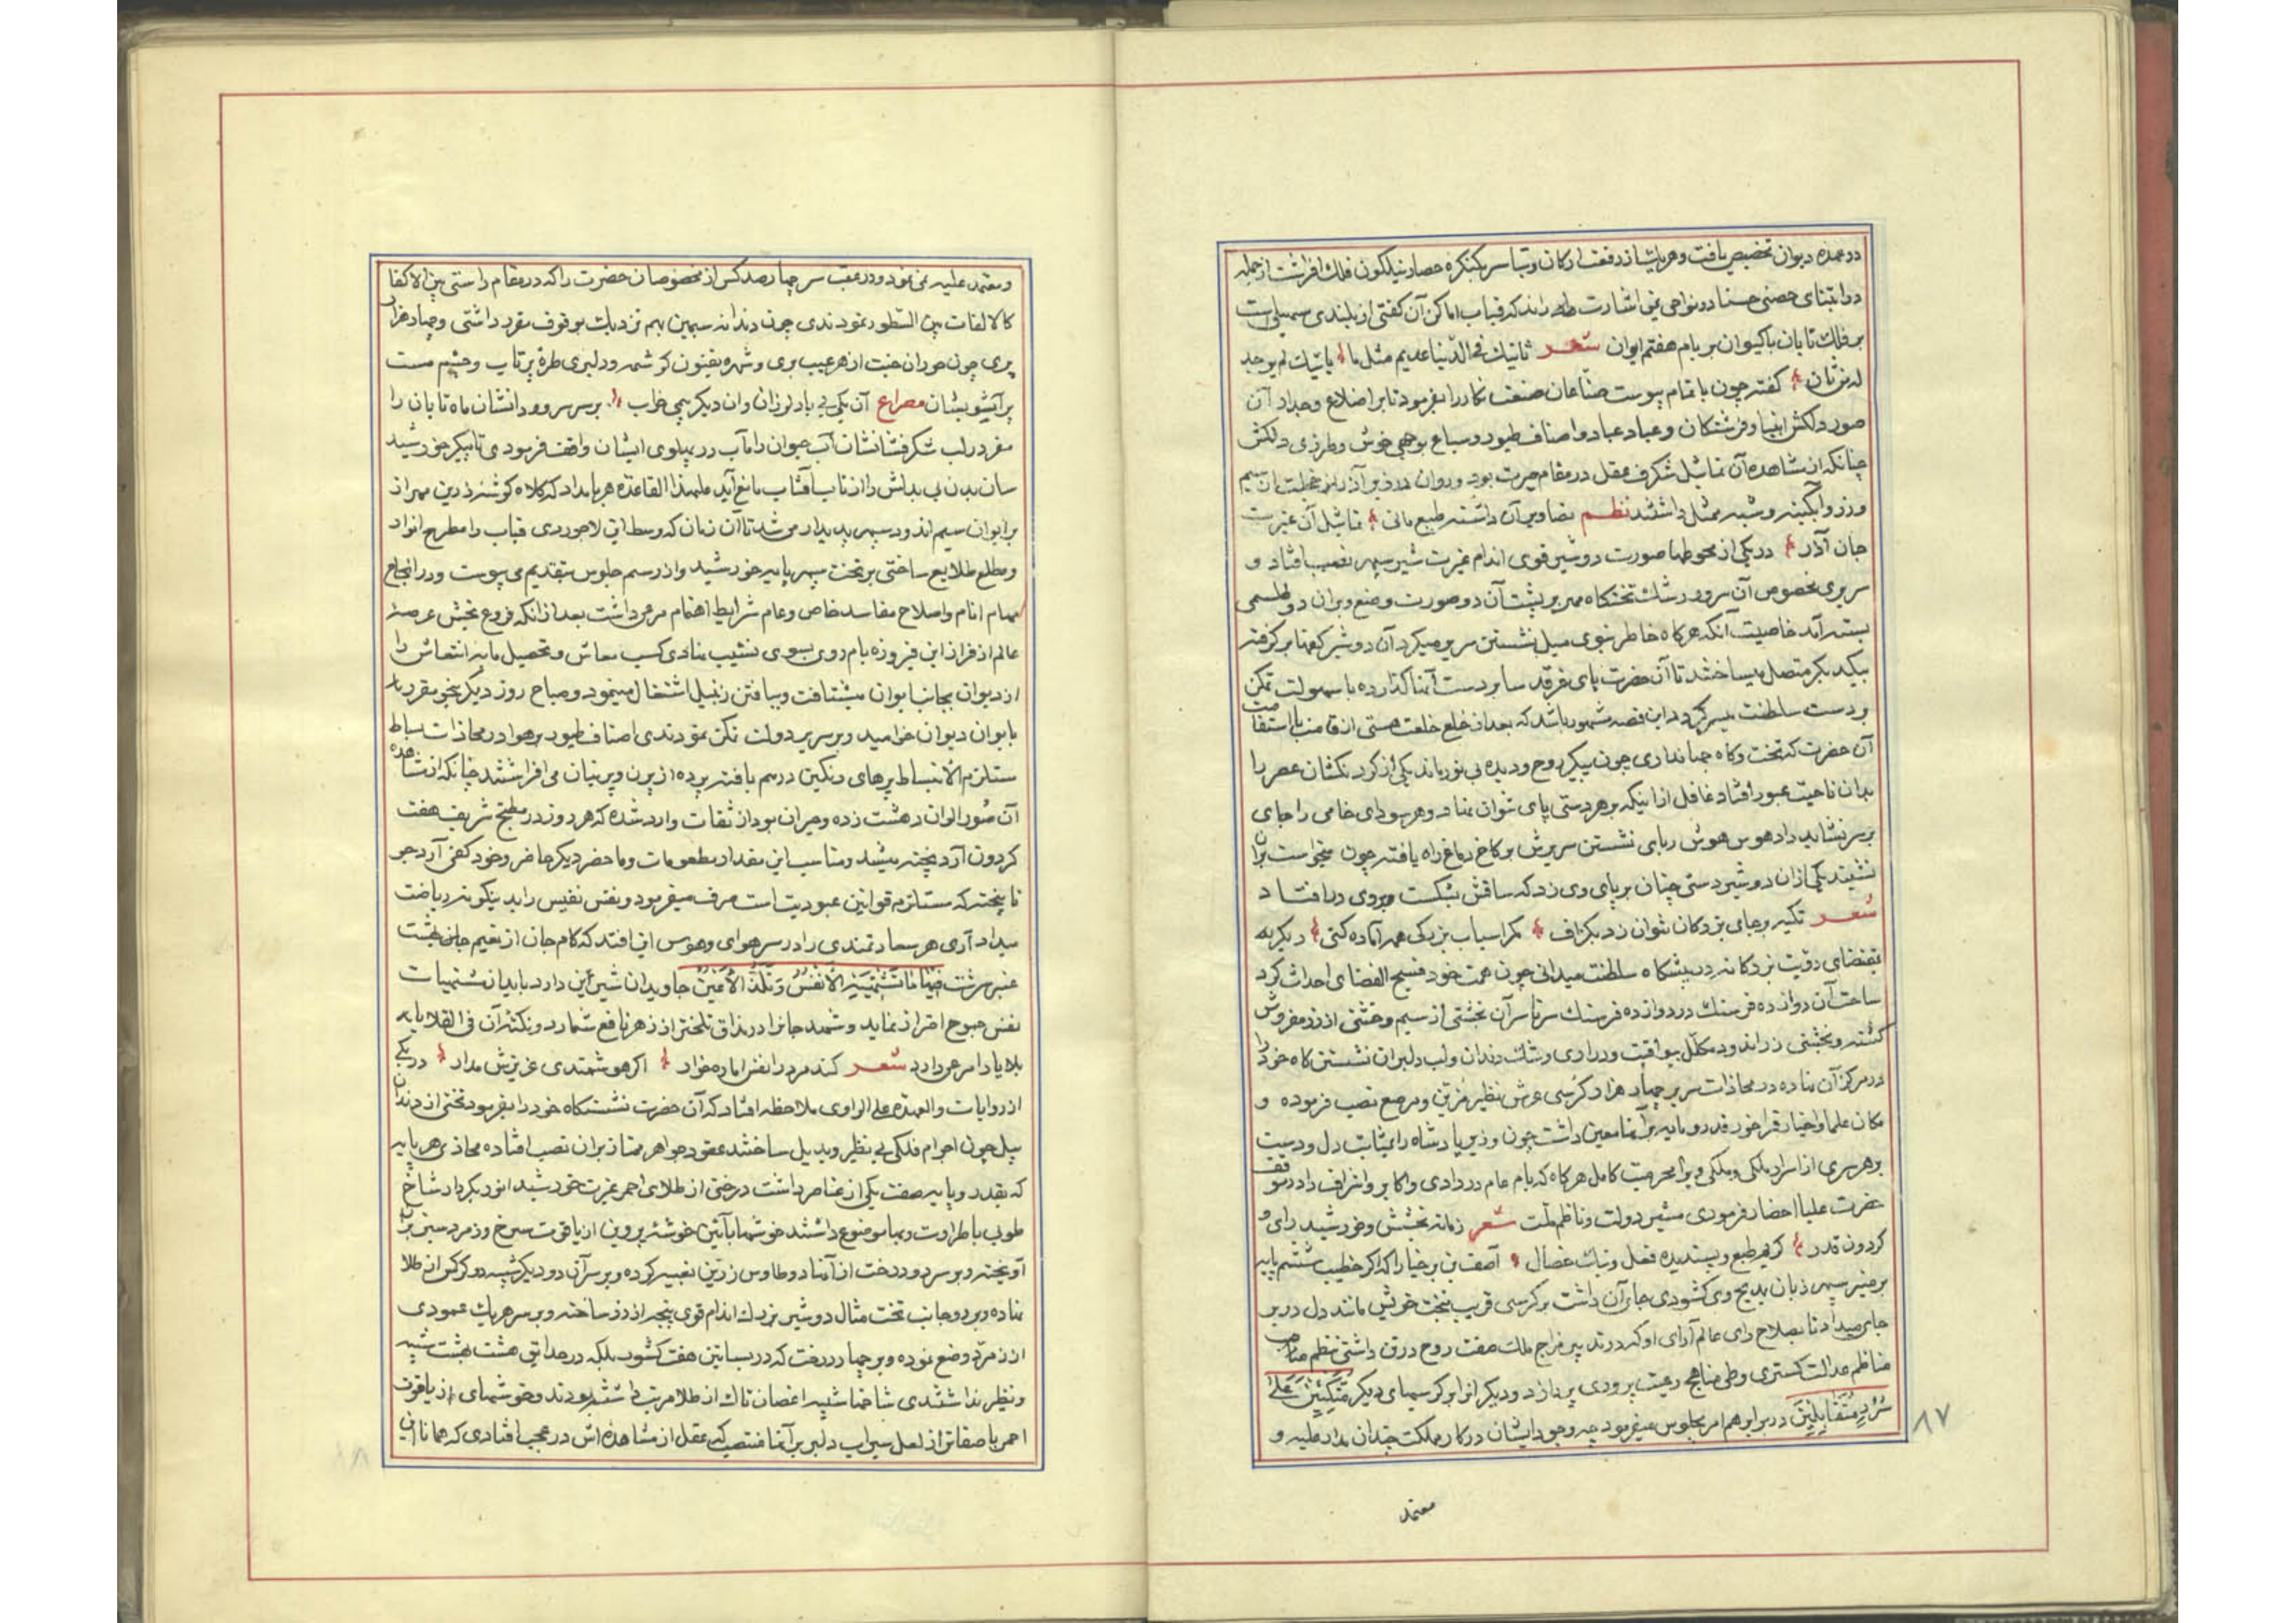 در عهده دیوان تخصیص یافت و هر یک شان در رفعت ارکان و قباب سر بکنکره حصار نیلکون فلک افراشت از جمله
در ابتنای حصنی در نواحی یمن اشارت راند که قباب اماکن آن کفتی از بلندی سهیلی است
بر فلک تابان یا کیوان بر بام هفتم ایوان شعر ثانیک فی الدنیا عدیم مثل ما یانیک لم یوجد
له من ثان کفته چون باتمام پیوست صناعان صنعت نکار را بفرمود تا بر اضلاع و جدار آن
صور دلکش انبیا و فرشتکان و عباد و اصناف طیور و سباع بوجهی خوش و طرزی دلکش
چنانکه از مشاهده آن تماثیل شکرف عقل در مقام حیرت بود و روان سیم
و زر و آبکینه و شبه ممثل داشتند نظم تصاویر آن داشته طبع مانی تماثیل آن غیرت
جان آذر در یکی از محوطها صورت دو شیر قوی اندام غیرت شیر سپهر نصب افتاد و
سریری مخصوص آن سرور رشک تختکاه مهر بر پشت آن دو صورت وضع و بران دو طلسمی
بسته آمد خاصیت آنکه هرکاه خاطر نبوی میل نشستن سریر میکرد آن دو شیر کفها بر کرفته
بیکدیکر متصل میساختند تا آن حضرت پای فرقد سا بر دست آنها کذارده باسهولت تمکن
بر دست سلطنت میسر کردد این قصه مشهور باشد که بعد از خلع خلعت هستی از قامت با استقامت
آن حضرت که تخت و کاه جهانداری چون پیکر بی روح و دیده بی نور ماند یکی از کردنکشان عصر را
بدان ناحیت عبور افتاد غافل از اینکه بر هر دستی پای نتوان نهاد و هر سودای خامی را جای
بر سر نشاید داد هوس هوش ربای نشستن سریرش بر کاخ دماغ راه یافته چون میخواست بران
نشیند یکی ازان دو شیر دستی چنان بر پای وی زد که ساقش بشکست و بروی درافتاد
شعر تکیه بر جای بزرکان نتوان زد بکزاف مکر اسباب بزرکی همه آماده کنی دیکر به
مقتضای رویت بزرکانه در پیشکاه سلطنت میدانی چون همت خود فسیح الفضای احداث کرد
ساحت آن دوازده فرسنک در دوازده فرسنک سرتاسر آن بخشتی از سیم و خشتی از زر مفروش
کشته و تختی زراندود مکلل بیواقیت و دراری رشک دندان و لب دلبران نشستنکاه خود را
در مرکز آن نهاده در محاذات سریر چهار هزار کرسی عرش نظیر مزین و مرصع نصب فرموده و
مکان علما و اخیار فراخور قدر و پایه بر آنها معین داشت چون وزیر پادشاه را بمثابت دل و دست
بر هر سری از اسرار ملکی و ملکی ویرا محرمیت کامل هرکاه که بام عام در دادی و اکابر و اشراف را در موقف
حضرت علیا احضار فرمودی مشیر دولت و ناظم ملت شعر زمانه بخشش و خورشید رای و
کردون قدر کریم طبع و پسندیده فعل و نیک خصال آصف بن برخیا را که اکر خطیب ششم پایه
بر منبر سپهر زبان بمدیح وی کشودی جای آن داشت بر کرسی قریب بتخت خویش مانند دل در بر
جای میداد تا بصلاح رای عالم آرای او که در تدبیر مزاج ملک صفت روح در تن داشتی بنظم مناصب
مناظم عدالت کستری و طی مناهج رعیت پروری پردازد و دیکرانرا بر کرسیهای دیکر مُتَّكِئِينَ عَلَىٰ
سُرُرٍ مُتَقَابِلِينَ در برابر هم امر بجلوس میفرمود چه وجود ایشان در کار مملکت چندان مدار علیه و
معتمد
٨٧
و معتمد علیه نمی نمود و در عقب سر چهارصد کس از مخصوصان حضرت را که در مقام راستی بین الاکفا
کالالفات بین السطور نمودندی چون دندانه سیمین بهم نزدیک بوقوف مقرر داشتی و چهار هزار
پری چون حوران جنت از هر عیب بری و شهره بفنون کرشمه و دلبری طره پرتاب و چشم مست
پر آشوبشان مصراع آن یکی بر باد لرزان وان دیکر بیمی خراب بر سر سرو روانشان ماه تابان را
مقر در لب شکرفشانشان آب حیوان را مآب در پهلوی ایشان واقف فرمودی تا پیکر خورشید
سان بدن بی بدلش را از تاب آفتاب مانع آید علیهذا القاعده هر بامداد که کلاه کوشه زرین مهر از
بر ایوان سیم اندود سپهر پدیدار می شد تا آن زمان که وسط این لاجوردی قباب را مطرح انوار
و مطلع طلایع ساختی بر تخت سپهر پایه خورشید و از رسم جلوس بتقدیم می پیوست و در انجاح
مهام انام و اصلاح مفاسد خاص و عام شرایط اهتمام مرعی داشت بعد از انکه فروغ بخش عرصه
عالم از فراز این فیروزه بام روی بسوی نشیب نهادی کسب معاش و تحصیل مایه انتعاش را
از دیوان بجانب ایوان میشتافت و ببافتن زنبیل اشتغال مینمود و صباح روز دیکر بنحو مقرر باز
بایوان دیوان خرامید و بر سریر دولت تمکن نمودندی اصناف طیور بر هوا در محاذات بساط
مستلزم الانبساط پرهای رنکین درهم بافته پرده از پرن و پرنیان می افراشتند چنانکه از مشاهده
آن صور الوان دهشت زده و حیران بود از ثقات وارد شده که هر روز در مطبخ شریف هفت
کردون آرد پخته میشد و مناسب این مقدار مطعومات و ماحضر دیکر حاضر و خود کفی آرد جو
ناپیخته که مستلزم قوانین عبودیت است صرف میفرمود و نفس نفیس را بدینکونه ریاضت
میداد آری هر سعادتمندی را در سر هوای و هوس این افتد که کام جان از نعیم جان بهشت
عنبر سرشت فِيهَا مَا تَشْتَهِيهِ الْأَنْفُسُ وَتَلَذُّ الْأَعْيُنُ جاویدان شیرین دارد باید از مشتهیات
نفس جموح احتراز نماید و شهد جانرا در مذاق تلختر از زهر ناقع شمارد و نکند آن فی القلایا به
بلایا را مرعی دارد شعر کند مرد را نفس اماره خوار اکر هوشمندی عزیزش مدار در یکی
از روایات والعهدة علی الراوی ملاحظه افتاد که آن حضرت نشستنکاه خود را بفرمود تختی از دندان
پیل چون اجرام فلکی بی نظیر و بدیل ساختند عقود جواهر ممتاز بران نصب افتاده محاذی هر پایه
که بقدر و پایه صفت یکی از عناصر داشت درختی از طلای احمر غیرت خورشید انور بکردار شاخ
طوبی با طراوت و بها موضوع داشتند خوشها بآئین خوشه پروین از یاقوت سرخ و زمرد سبز بر
آویخته و بر سر دو درخت از آنها دو طاوس زرین تعبیه کرده و بر سر آن دو دیکر شبیه دو کرکس از طلا
نهاده و بر دو جانب تخت مثال دو شیر بزرک اندام قوی پنجه از زر ساخته و بر سر هر یک عمودی
از زمرد وضع نموده و بر چهار درخت که در بساتین هفت کشور بلکه در حدایق هشت بهشت شبیه
و نظیر نداشتندی شاخها شبیه اغصان تاک از طلا مرتب داشته بودند و خوشهای از یاقوت
احمر باصفاتر از لعل سیراب دلبر بر آنها منتصب که عقل از مشاهده اش در عجب افتادی که همانا این